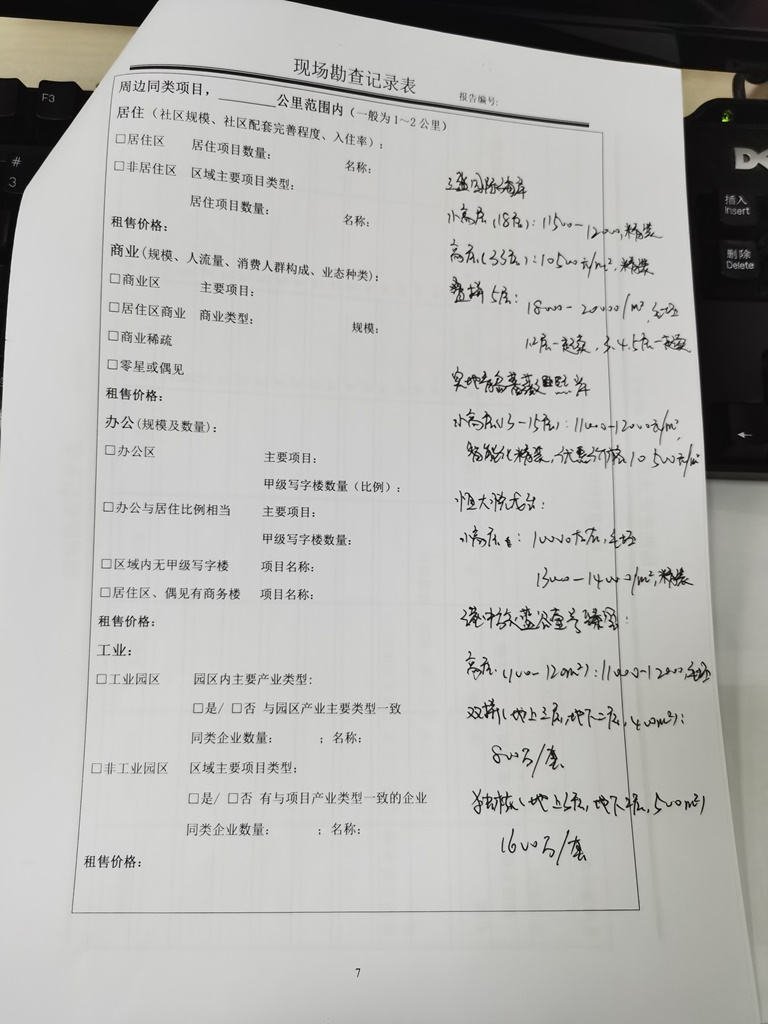 现场勘查记录表
报告编号:
周边同类项目，______公里范围内（一般为1～2公里）
居住（社区规模、社区配套完善程度、入住率）:
□居住区 居住项目数量: 名称:
□非居住区 区域主要项目类型:
居住项目数量: 名称:
租售价格:
商业(规模、人流量、消费人群构成、业态种类):
□商业区 主要项目:
□居住区商业 商业类型: 规模:
□商业稀疏
□零星或偶见
租售价格:
办公(规模及数量):
□办公区 主要项目:
甲级写字楼数量（比例）:
□办公与居住比例相当 主要项目:
甲级写字楼数量:
□区域内无甲级写字楼 项目名称:
□居住区、偶见有商务楼 项目名称:
租售价格:
工业:
□工业园区 园区内主要产业类型:
□是/ □否 与园区产业主要类型一致
同类企业数量: ; 名称:
□非工业园区 区域主要项目类型:
□是/ □否 有与项目产业类型一致的企业
同类企业数量: ; 名称:
租售价格:
三盛国际海岸
小高层(18层): 11500-12000,精装
高层(33层): 10500元/m²,精装
叠拼5层: 18000-20000/m²,毛坯
1.2层一起卖, 3.4.5层一起卖
实地青岛蔷薇熙岸
小高层(13-15层): 11000-12000元/m²,
智能化精装,优惠价格10500元/m²
恒大
小高层: 10000左右,毛坯
13000-14000/m²,精装
港中旅蓝谷壹号:
高层(100-120m²): 11000-12000,毛坯
双拼(地上三层,地下二层,400m²):
800万/套
1600万/套
7
F3
#
3
插入
Insert
删除
Delete